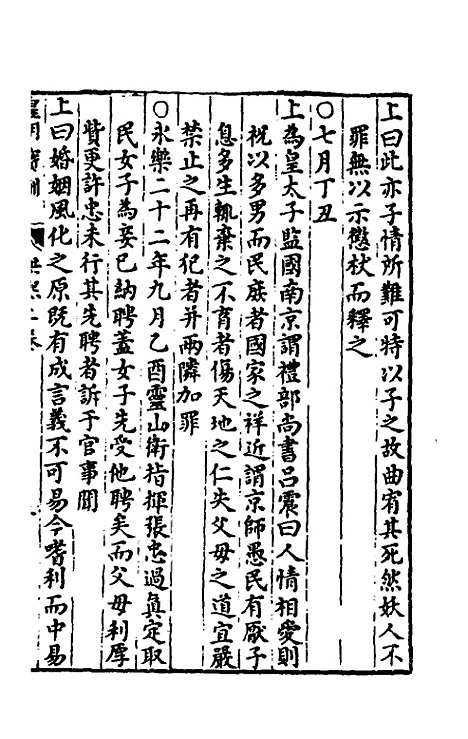 上曰此亦子情所難可特以子之故曲宥其死然妖人不
罪無以示懲杖而釋之
○七月丁丑
上為皇太子監國南京謂禮部尚書呂震曰人情相愛則
祝以多男而民庶者國家之祥近謂京師愚民有厭子
息多生輒棄之不育者傷天地之仁失父母之道宜嚴
禁止之再有犯者并兩隣加罪
○永樂二十二年九月乙酉靈山衛指揮張忠過真定取
民女子為妾已納聘蓋女子先受他聘矣而父母利厚
貲更許忠未行其先聘者訴于官事聞
上曰婚姻風化之原既有成言義不可易今嗜利而中易
皇明寶訓